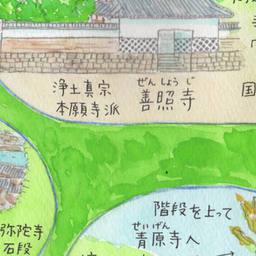 浄土真宗
本願寺派
ぜんしょうじ
善照寺
国
弥陀寺
石段
階段を上って
せいげん
青原寺へ